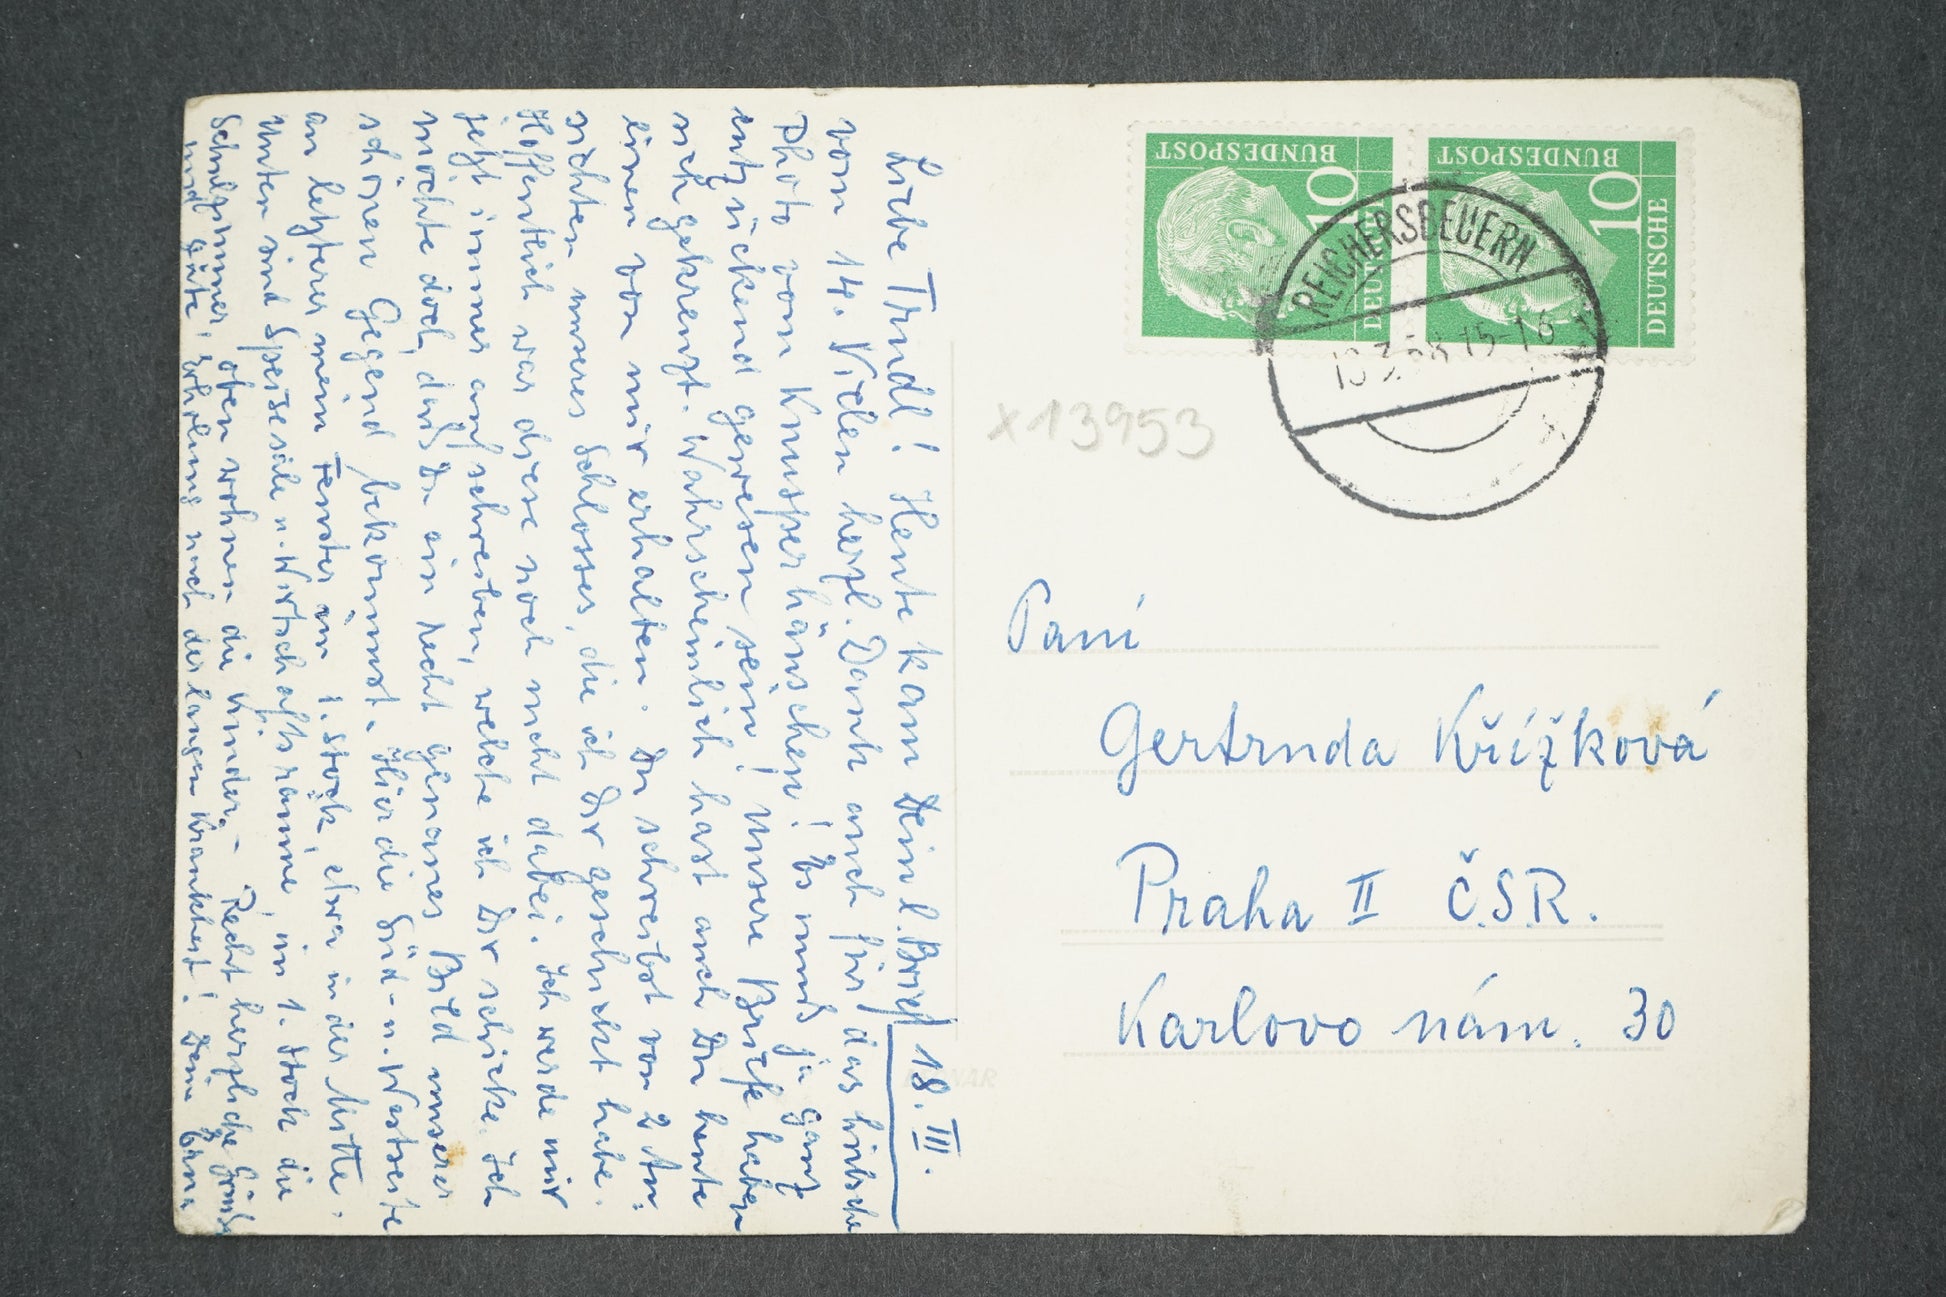 18. III.
Liebe Trudl! Heute kam Dein l. Brief
vom 14. Vielen herzl. Dank auch für das hübsche
Photo vom Knusperhäuschen! Es muß ja ganz
entzückend gewesen sein! Unsere Briefe haben
sich gekreuzt. Wahrscheinlich hast auch Du heute
einen von mir erhalten. Du schreibst von 2 An-
sichten unseres Schlosses, die ich Dir geschickt habe.
Hoffentlich war diese noch nicht dabei. Ich werde mir
jetzt immer aufschreiben, welche ich Dir schicke. Ich
möchte doch, daß Du ein recht genaues Bild unserer
schönen Gegend bekommst. Hier die Süd- u. Westseite
an letzterer mein Fenster im 1. Stock, etwa in der Mitte.
Unten sind Speisesäle u. Wirtschaftsräume, im 1. Stock die
Schulzimmer, oben wohnen die Kinder. – Recht herzliche Grüße
und gute Erholung nach der langen Krankheit! Deine Erna
BUNDESPOST
10
DEUTSCHE
BUNDESPOST
10
DEUTSCHE
REICHERSBEUERN
15-16
x13953
Paní
Gertruda Křížková
Praha II ČSR.
Karlovo nám. 30